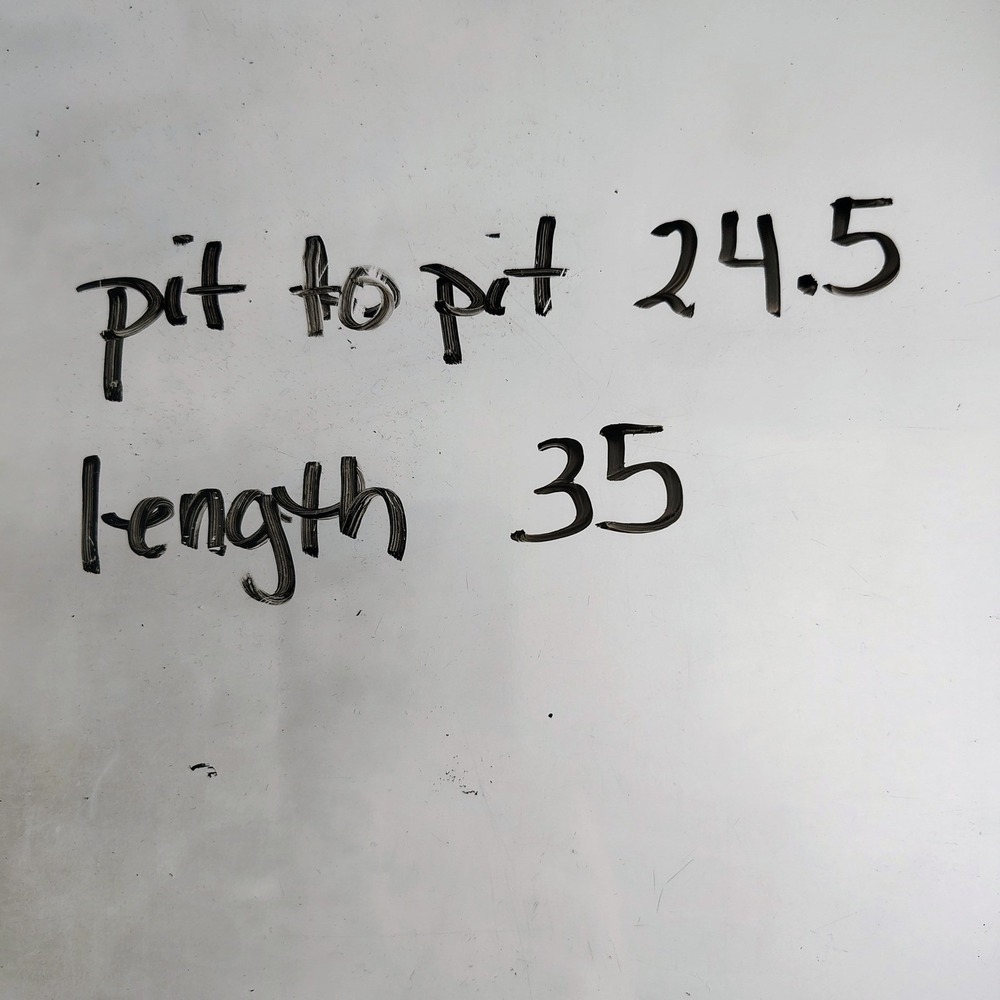 pit to pit 24.5
length 35